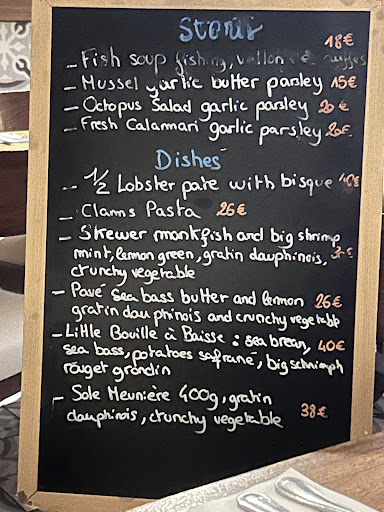 Starter 18€
- Fish soup fishing,
- Mussel garlic butter parsley 15€
- Octopus Salad garlic parsley 20€
- Fresh Calamari garlic parsley 20€
Dishes
- 1/2 Lobster pate with bisque 40€
- Clamns Pasta 26€
- Skewer monkfish and big shrimp
mint, lemon green, gratin dauphinois,
crunchy vegetable
- Pavé sea bass butter and lemon 26€
gratin dauphinois and crunchy vegetable
- Little Bouille à Baisse : sea brean, 40€
sea bass, potatoes safrané, big schrimph
rouget grondin
- Sole Meunière 400g, gratin
dauphinois, crunchy vegetable 38€